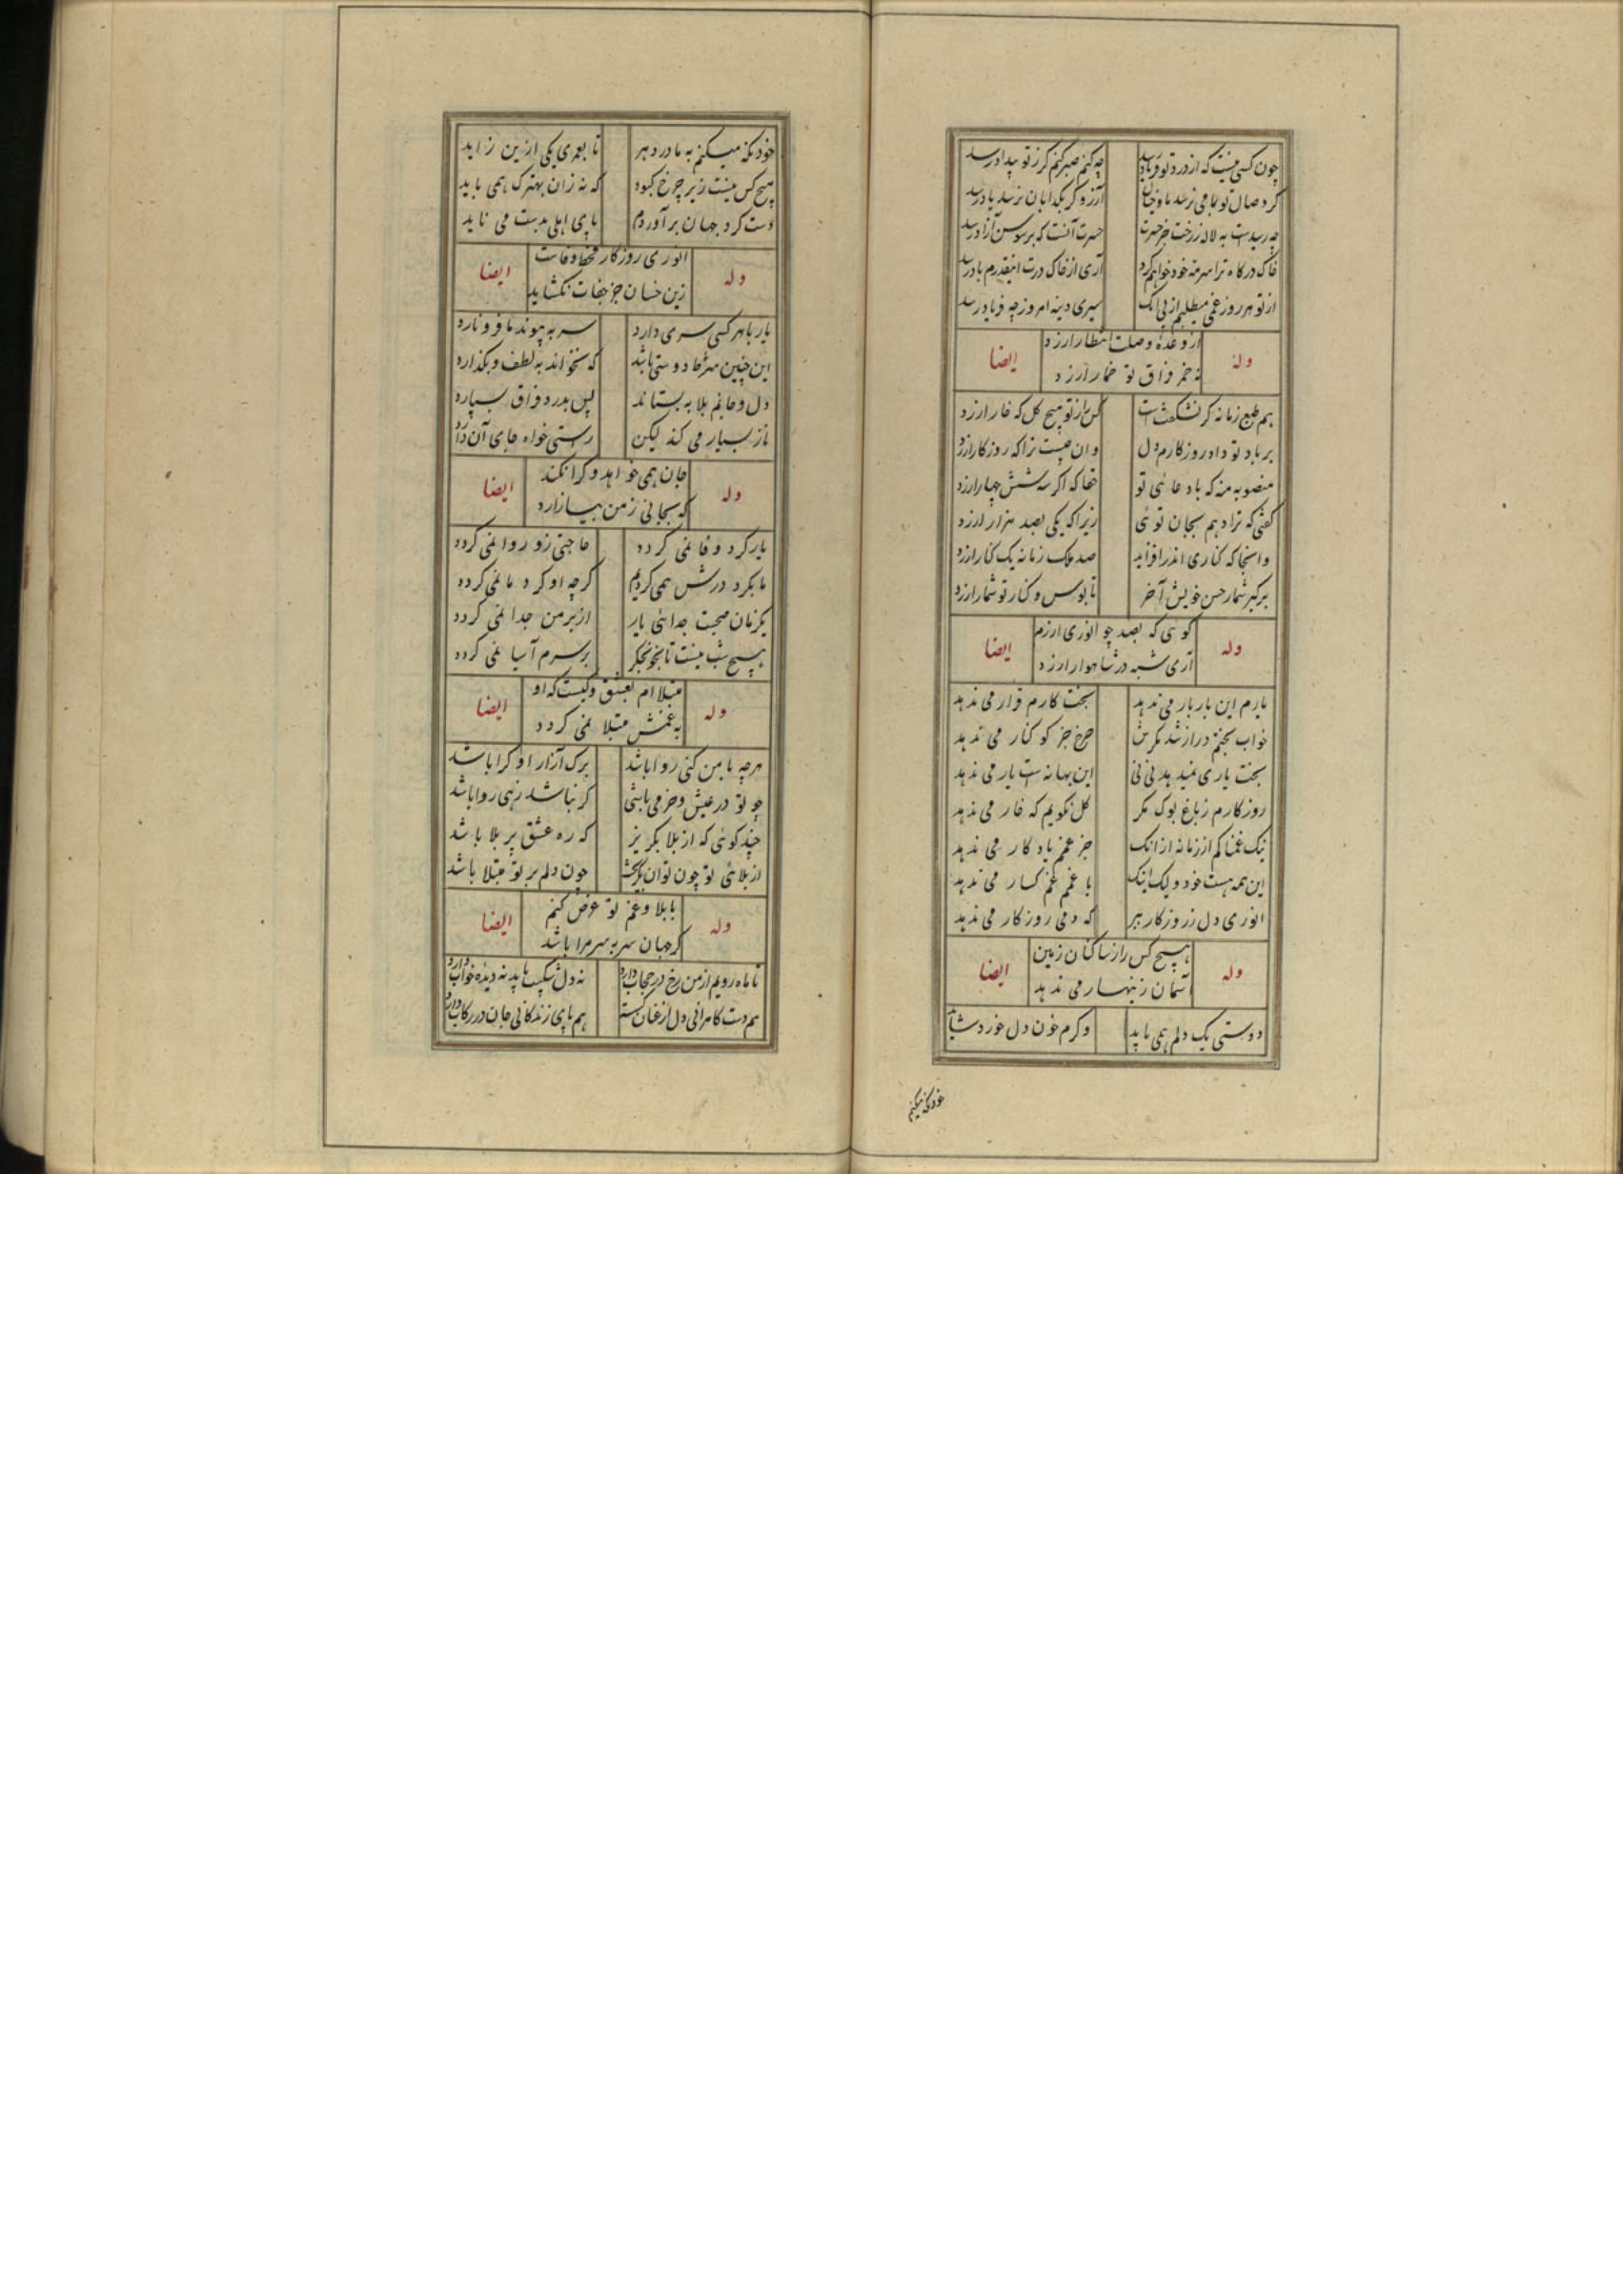 چون کسی نیست که از درد تو فریاد رسد چه کنم صبر کنم گر ز تو بیداد رسد
گر وصال تو بما می نرسد ما و خیال آرزو گر بگدایان نرسد یاد رسد
چه رسیدست به لاله ز رخت جز حسرت حسرت آنست که بر سوسن آزاد رسد
خاک درگاه ترا سرمه خود خواهم کرد آری از خاک درت اینقدرم باد رسد
از تو هر روز غمی میطلبم از پی آنک سیری دینه امروز چه فریاد رسد
وله از وعده وصلت انتظار ارزد ایضا
نه خمر فراق تو خمار ارزد
هم طبع زمانه گر نشکفتست کس را ز تو هیچ گل که خار ارزد
بر باد تو داد روزگارم دل وان چیست ترا که روزگار ارزد
منصوبه منه که باد غائی تو حقا که اگر سه شش چهار ارزد
گفتی که ترا دهم بجان توئی زیرا که یکی بصد هزار ارزد
وانجا که کناری اندر افزاید صد ملک زمانه یک کنار ارزد
برگیر شمار حسن خویش آخر تا بوس و کنار تو شمار ارزد
وله گوئی که بصد چو انوری ارزم ایضا
آری شبه در شاهوار ارزد
یارم این بار بار می ندهد بخت کارم قرار می ندهد
خواب بختم دراز شد مگرش چرخ جز کوکنار می ندهد
بخت یاری نمیدهد نی نی این بهانه است یار می ندهد
روزگارم ز باغ بوک مگر گل نگویم که خار می ندهد
نیک غمناکم از زمانه ازانک جز غمم یادگار می ندهد
این همه هست خود ولیک اینک با غمم غمگسار می ندهد
انوری دل ز روزگار ببر که دمی روزگار می ندهد
وله هیچ کس را ز ساکنان زمین ایضا
آسمان زینهار می ندهد
دوستی یک دلم همی باید وگرم خون دل خورد شاید
خود نگه میکنم
خود نگه میکنم به مادر دهر تا بعمری یکی ازین زاید
هیچ کس نیست زیر چرخ کبود که نه زان بهترک همی باید
دست گرد جهان برآوردم پای اهلی بدست می ناید
وله انوری روزگار قحط وفاست ایضا
زین خسان جز جفات نگشاید
یار با هر کسی سری دارد سر به پیوند ما فرو نارد
این چنین شرط دوستی باشد که بخواند به لطف و بگذارد
دل و جانم بلا به بستاند پس بدرد فراق بسپارد
ناز بسیار می کند لیکن رستی خواه جای آن دارد
وله جان همی خواهد و کرا نکند ایضا
که بجانی ز من بیازارد
یار گرد وفا نمی گردد حاجتی زو روا نمی گردد
ما بگرد درش همی گردیم گرچه او گرد ما نمی گردد
یکزمان صحبت جدائی یار از بر من جدا نمی گردد
هیچ شب نیست تا بخونجگر بر سرم آسیا نمی گردد
وله مبتلا ام بعشق و کیست که او ایضا
به غمش مبتلا نمی گردد
هرچه با من کنی روا باشد برگ آزار او کرا باشد
چو تو در عیش و خرمی باشی گر نباشد رهی روا باشد
چند گوئی که از بلا بگریز که ره عشق پر بلا باشد
از بلائی تو چون توان بگریخت چون دلم بر تو مبتلا باشد
وله با بلا و غم تو عرض کنم ایضا
گر جهان سر به سر مرا باشد
تا ماه رویم از من رخ در حجاب دارد نه دل شکیب یابد نه دیده خواب دارد
هم دست کامرانی دل از عنان گسسته هم پای زندگانی جان در رکاب دارد